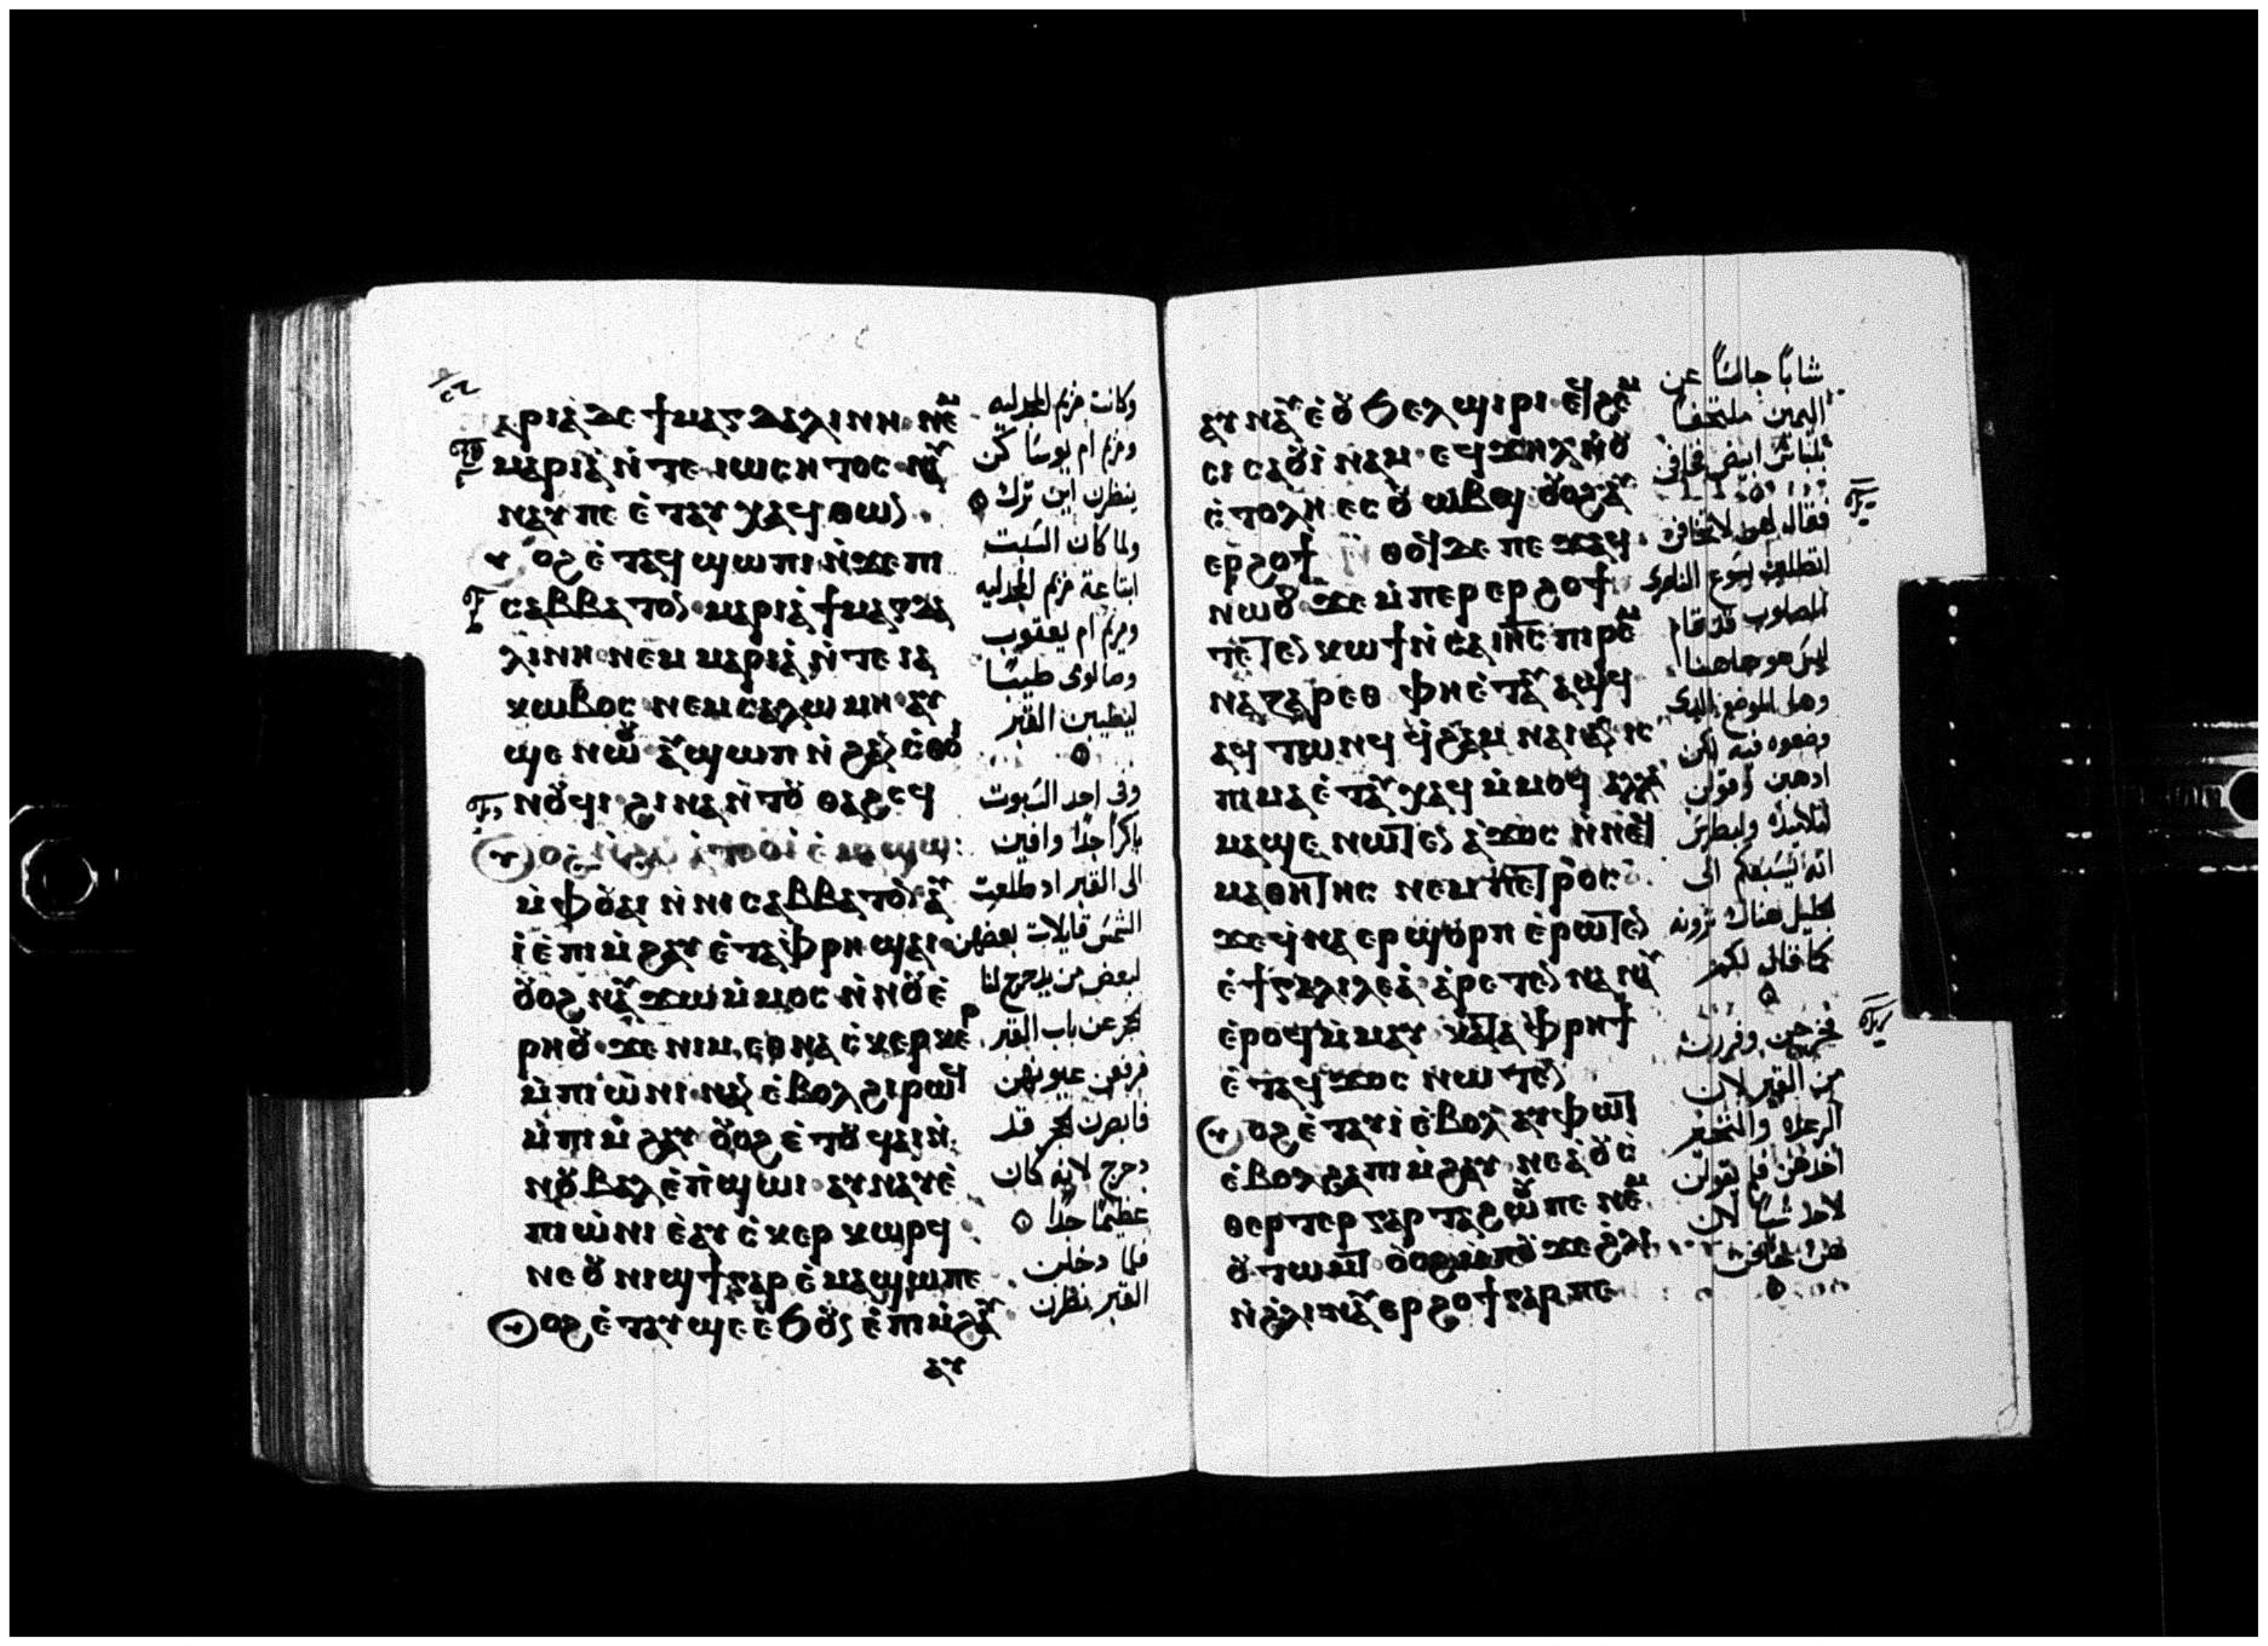 ⲁⲣⲓⲁ̀ ⲇⲉ ϯⲙⲁⲅⲇⲁⲗⲓⲛⲏ ⲛⲉⲙ
ⲙⲁⲣⲓⲁ̀ ⲛ̀ⲧⲉ ⲓⲱⲥⲏⲧⲟⲥ ⲛⲁⲩ
ⲛⲁⲩ ⲡⲉ ⲉ̀ⲧⲁⲩ ⲭⲁϥ ⲑⲱⲛ
ⲟϩ ⲉ̀ⲧⲁϥϣⲱⲡⲓ ⲛ̀ϫⲉ ⲡⲓ
ⲥⲁⲃⲃⲁⲧⲟⲛ ⲙⲁⲣⲓⲁ̀ ϯⲙⲁⲅⲇⲁ
ⲗⲓⲛⲏ ⲛⲉⲙ ⲙⲁⲣⲓⲁ̀ ⲛ̀ⲧⲉ ⲓⲁ
ⲕⲱⲃⲟⲥ ⲛⲉⲙ ⲥⲁⲗⲱⲙⲏ ⲁⲩ
ϣⲉ ⲛⲱⲟⲩ ⲁⲩϣⲱⲡ ⲛ̀ϩⲁⲛ ⲥ̀ⲑⲟⲓ
ⲛⲟⲩϥⲓ ϩⲓⲛⲁ ⲛ̀ⲧⲟⲩ ⲑⲁϩⲥϥ
ⲙ̀ⲫⲟⲩⲁⲓ ⲛ̀ⲛⲓⲥⲁⲃⲃⲁⲧⲟⲛ ⲁⲩ
ⲓ̀ ⲉ̀ⲡⲓⲙ̀ϩⲁⲩ ⲉ̀ⲧⲁ ⲫⲣⲏ ϣⲁⲓ
ⲟⲩⲟϩ ⲛⲁⲩϫⲱ ⲙ̀ⲙⲟⲥ ⲛ̀ⲛⲟⲩⲉ̀
ⲣⲏⲟⲩ ϫⲉ ⲛⲓⲙ ⲉⲑⲛⲁ ⲥ̀ⲕⲉⲣⲕⲉⲣ
ⲙ̀ⲡⲓⲱ̀ⲛⲓ ⲛⲁⲛ ⲉ̀ⲃⲟⲗ ϩⲓⲣⲱϥ
ⲙ̀ⲡⲓⲙ̀ϩⲁⲩ ⲟⲩⲟϩ ⲉ̀ⲧⲟⲩϥⲁⲓ ⲛ̀
ⲛⲟⲩⲃⲁⲗ ⲉ̀ⲡ̀ϣⲱⲓ ⲁⲩⲛⲁⲩ ⲉ̀
ⲡⲓⲱ̀ⲛⲓ ⲉ̀ⲁⲩ ⲥ̀ⲕⲉⲣⲕⲱⲣϥ
ⲛⲉ ⲟⲩⲛⲓϣϯ ⲅⲁⲣ ⲉ̀ⲙⲁϣⲱ ⲡⲉ
ⲟϩ ⲉ̀ⲧⲁⲩϣⲉ ⲉ̀ϧⲟⲩⲛ ⲉ̀ⲡⲓⲙ̀ϩⲁⲩ
ⲁⲩ
وكانت مريم المجدليه
ومريم ام يوسا كن
ينظرن اين ترك
ولما كان السبت
ابتاعة مريم المجدليه
ومريم ام يعقوب
وصالومى طيبًا
ليطيبن القبر
وفى احد السبوت
باكرًا جدًا وافين
الى القبر اد طلعت
الشمس قايلات بعضهن
لبعض من يدحرج لنا
الحجر عن باب القبر
فرفعن عيونهن
فابصرن الحجر قد
دحرج لانه كان
عظيمًا جدًا
فلما دخلن
القبر نظرن
ⲁⲩⲛⲁⲩ ⲉ̀ⲟⲩϧⲉⲗϣⲓⲣⲓ ⲉϥϩⲉⲙ
ⲥⲓ ⲥⲁⲟⲩⲓ̀ⲛⲁⲙ ⲉϥϫⲏⲗ ⲛ̀ⲟⲩ
ⲉ̀ⲧⲟⲗⲏ ⲉⲥⲟⲩⲱⲃϣ ⲟⲩⲟϩ ⲁⲩ
ⲉⲣϩⲟϯ ⲑⲟϥ ⲇⲉ ⲡⲉϫⲁϥ
ⲛⲱⲟⲩ ϫⲉ ⲙ̀ⲡⲉⲣⲉⲣϩⲟϯ
ⲧⲉⲧⲉⲛⲕⲱϯ ⲛ̀ⲥⲁ ⲓⲏⲥ ⲡⲓⲣⲉⲙ
ⲛⲁⲍⲁⲣⲉⲑ ⲫⲏⲉ̀ⲧⲁⲩⲁϣϥ
ⲁϥⲧⲱⲛϥ ϥ̀ⲭⲏ ⲙ̀ⲛⲁⲓ ⲁⲛ ⲓⲥ
ⲡⲓⲙⲁ ⲉ̀ⲧⲁⲩⲭⲁϥ ⲙ̀ⲙⲟϥ ⲁⲗⲗⲁ
ⲙⲁϣⲉ ⲛⲱⲧⲉⲛ ⲁ̀ϫⲟⲥ ⲛ̀ⲛⲉϥ
ⲙⲁⲑⲏⲧⲏⲥ ⲛⲉⲙ ⲡⲉⲧⲣⲟⲥ
ϫⲉ ϥ̀ⲛⲁⲉⲣϣⲟⲣⲡ ⲉ̀ⲣⲱⲧⲉⲛ
ⲉ̀ϯⲅⲁⲗⲓⲗⲉⲁ̀ ⲁ̀ⲣⲉⲧⲉⲛⲛⲁⲛⲁⲩ
ⲉ̀ⲣⲟϥ ⲙ̀ⲙⲁⲩ ⲕⲁⲧⲁ ⲫⲣⲏϯ
ⲉ̀ⲧⲁϥϫⲟⲥ ⲛⲱⲧⲉⲛ
ⲟϩ ⲉ̀ⲧⲁⲩⲓ̀ ⲉ̀ⲃⲟⲗ ⲁⲩⲫⲱⲧ
ⲉ̀ⲃⲟⲗ ϩⲁ ⲡⲓⲙ̀ϩⲁⲩ ⲛⲉⲁ̀ ⲟⲩⲥ̀
ⲑⲉⲣⲧⲉⲣ ⲅⲁⲣ ⲧⲁϩⲱⲟⲩ ⲡⲉ ⲛⲉⲙ
ⲟⲩⲧⲱⲙⲧ ⲟⲩⲟϩ ⲙ̀ⲡⲟⲩϫⲉ ϩ̀ⲗⲓ
ⲛ̀ϩ̀ⲗⲓ ⲛⲁⲩⲉⲣϩⲟϯ ⲅⲁⲣ ⲡⲉ
شابًا جالسًا عن
اليمين ملتحفًا
بلباس ابيض فخافن
فقال لهن لا تخافن
اتطلبن يسوع الناصرى
المصلوب قد قام
ليس هو هاهنا
وهدا الموضع الدى
وضعوه فيه لكن
ادهبن وقولن
لتلاميذه ولبطرس
انه يسبقكم الى
الجليل هناك ترونه
كما قال لكم
فخرجن وفررن
من القبر لان
الرعدة والتحير
اخدهن فلم تقولن
لاحد شيًا لان